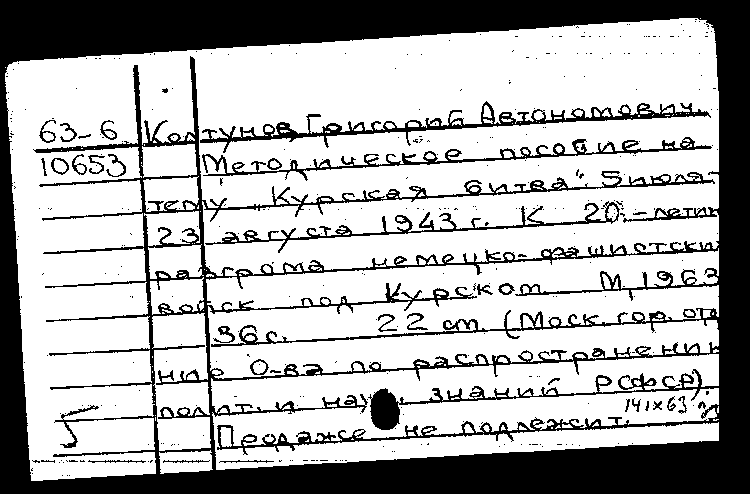 63-6 Колтунов, Григорий Автономович.
10653 Методическое пособие на
тему „Курская битва". 5 июля-
23 августа 1943 г. К 20-летию
разгрома немецко-фашистски
войск под Курском. М, 1963
36 с. 22 см. (Моск. гор. отд
ние О-ва по распространени
полит. и науч. знаний РСФСР).
5 Продаже не подлежит. 141х63